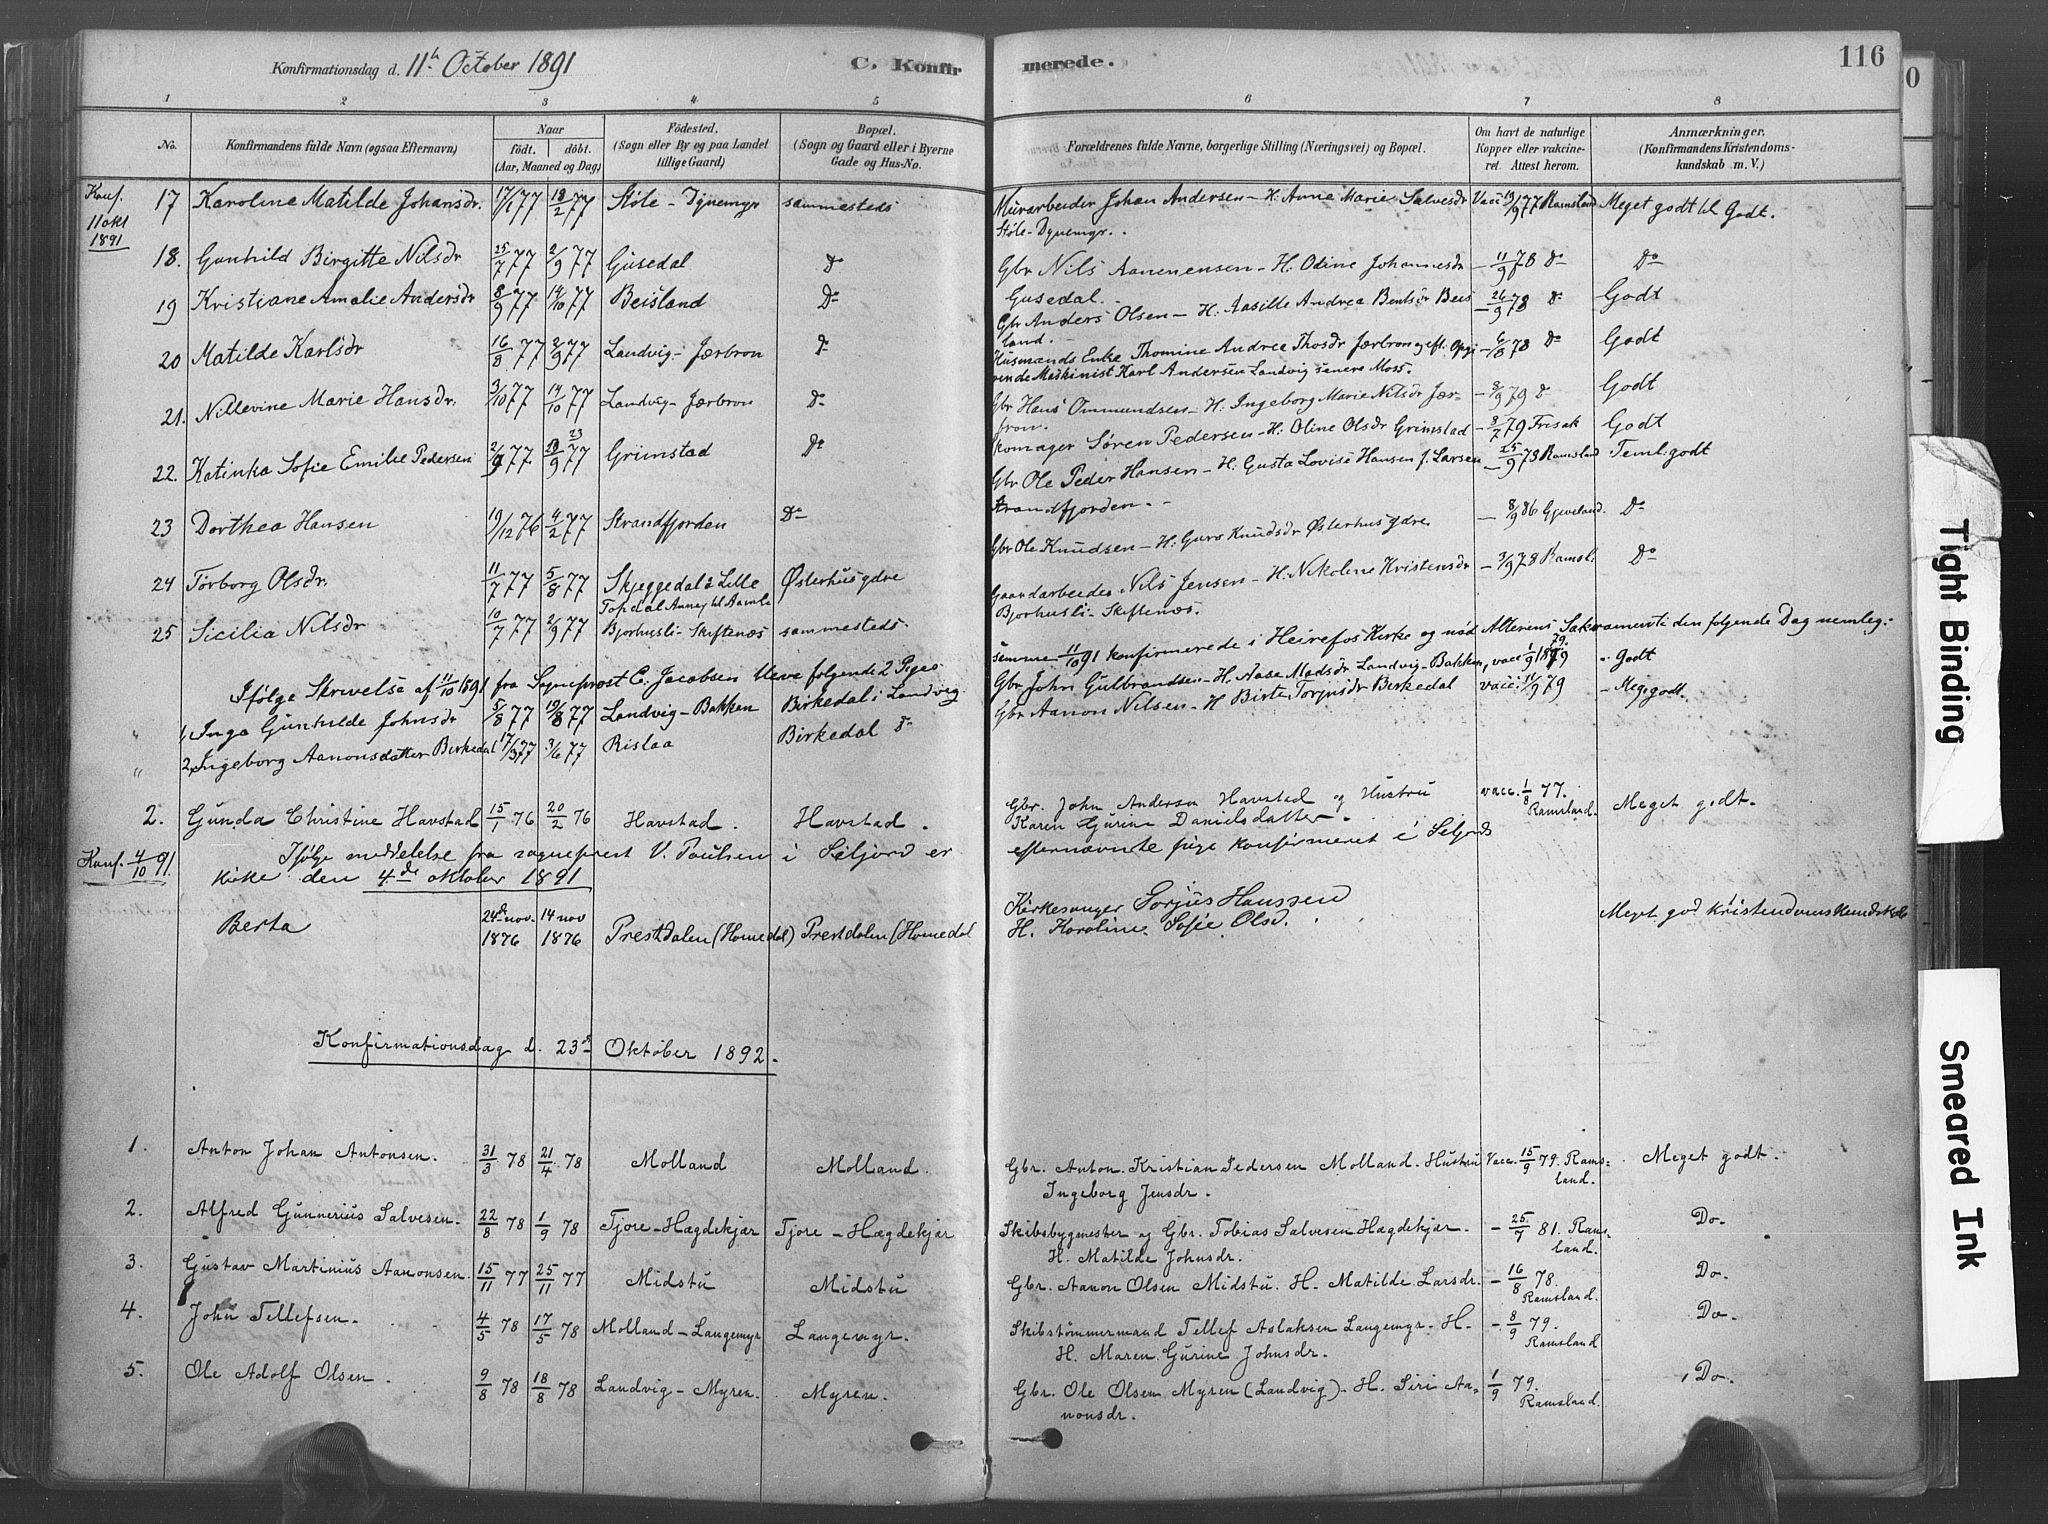 Konfirmationsdag d. 11te October 1891 C. Konfirmerede. 116
1 2 3 4 5 6 7 8
No. Konfirmandens fulde Navn (ogsaa Efternavn) Naar født, døbt. (Aar, Maaned og Dag) Fødested, (Sogn eller By og paa Landet tillige Gaard) Bopæl. (Sogn og Gaard eller i Byerne Gade og Hus-No. Forældrenes fulde Navne, borgerlige Stilling (Næringsvei) og Bopæl. Om havt de naturlige Kopper eller vaccineret. Attest herom. Anmærkninger. (Konfirmandens Kristendomskundskab m. V.)
Konf. 11 okt 1891
17 Karoline Matilde Johansdr. 17/1 77 18/2 77 Støle - Dynemyr sammesteds Murarbeider Johan Andersen - H: Anne Marie Salvesdr Vacc 19/9 77 Ramsland Meget godt til Godt.
Støle - Dynemyr.
18. Gunhild Birgitte Nilsdr 25/7 77 2/9 77 Gusedal Do Gbr Nils Aanenensen - H: Odine Johannesdr - 11/9 78 Do Do
Gusedal.
19 Kristiane Amalie Andersdr 8/9 77 14/10 77 Beisland Do Gbr Anders Olsen - H: Aasille Andrea Bentsdr Beis - 26/9 78 Do Godt
land.
20 Matilde Karlsdr 16/8 77 2/9 77 Landvig - Jærbron Do Husmands Enke Thomine Andrea Thosdr Jærbron og eft. Opgi - 6/8 78 Do Godt
vende Maskinist Karl Andersen Landvig senere Moss.
21. Nillevine Marie Hansdr. 3/10 77 14/10 77 Landvig - Jærbron Do Gbr Hans Ommundsen - H: Ingeborg Marie Nilsdr Jær- - 8/9 79 Do Godt
bron.
22. Katinka Sofie Emilie Pedersen 2/9 77 23/9 77 Grimstad Do Skomager Søren Pedersen - H: Oline Olsdr Grimstad - 8/7 79 Fresak Godt
23 Dorthea Hansen 19/12 76 4/2 77 Strandfjorden Do Gbr Ole Peder Hansen - H: Gusta Lovise Hansen f. Larsen - 25/9 78 Ramsland Teml. godt
Strandfjorden. -
24 Torborg Olsdr. 11/7 77 5/8 77 Skjeggedal i Lille Østerhus ydre Gbr Ole Knudsen - H: Guro Knudsdr Østerhus ydre - 8/9 86 Gjeveland. Do
Topdal Annex til Aamli
25 Sicilia Nilsdr 10/7 77 2/9 77 Bjorhusli - Skiftenæs sammesteds. Gaardarbeider Nils Jensen - H: Nikoline Kristensdr - 3/9 78 Ramsl. Do
Bjorhusli - Skiftenæs.
Ifølge Skrivelse af 11/10 1891 fra Sogneprest E. Jacobsen bleve følgende 2 Piger
samme 11/10 91 konfirmerede i Heirefos Kirke og nød Alterens Sakramente den følgende Dag nemlig:
" 1, Inga Gunhilde Johnsdr 5/8 77 19/8 77 Landvig - Bakken Birkedal i Landvig Gbr John Gulbrandsen - H. Aase Madsdr Landvig - Bakken, vacc 1/9 79 - Godt
" 2, Ingeborg Aanonsdatter Birkedal 17/3 77 3/6 77 Rislaa Birkedal Do Gbr Aanon Nilsen - H Birte Torjusdr Birkedal vacc: 11/9 79 - Meg. godt.
2. Gunda Christine Havstad 15/1 76 20/2 76 Havstad. Havstad. Gbr. John Andersen Havstad og Hustru vacc. 1/8 77. Ramsland. Meget godt.
Karen Gurine Danielsdatter.
Konf. 4/10 91. Ifølge meddelelse fra sogneprest V. Poulsen i Siljord er efternævnte pige konfirmeret i Seljords
kirke den 4de oktober 1891
Berta 24de nov. 1876 14 nov 1876 Prestdalen (Homedal) Prestdalen (Homedal Kirkesanger Torjus Hanssen Meget god kristendomskundskab
H. Karoline Sofie Olsd.
Konfirmationsdag d. 23de Oktober 1892.
1. Anton Johan Antonsen. 31/3 78 21/4 78 Molland Molland. Gbr. Anton Kristian Pedersen Molland. Hustru Vacc. 15/9 79. Ramsland. Meget godt.
Ingeborg Jensdr.
2. Alfred Gunnerius Salvesen. 22/8 78 1/9 78 Tjore - Hægdekjær Tjore - Hægdekjær Skibsbygmester og Gbr. Tobias Salvesen Hægdekjær. - 25/7 81. Ramsland. Do.
H. Matilde Johnsdr.
3. Gustav Martinius Aanonsen. 15/11 77 25/11 77 Midstu Midstu Gbr. Aanon Olsen Midstu. H. Matilde Larsdr. - 16/8 78. Ramsland. Do.
4. John Tellefsen. 4/5 78 17/5 78 Molland - Langemyr Langemyr. Skibstømmermand Tellef Aslaksen Langemyr. H. - 8/9 79. Ramsland Do.
H. Maren Gurine Johnsdr.
5. Ole Adolf Olsen. 9/8 78 18/8 78 Landvig - Myren. Myren. Gbr. Ole Olsen Myren (Landvig). H. Siri Aa- 1/9 79. Ramsland. Do.
nonsdr.
Tight Binding
Smeared Ink